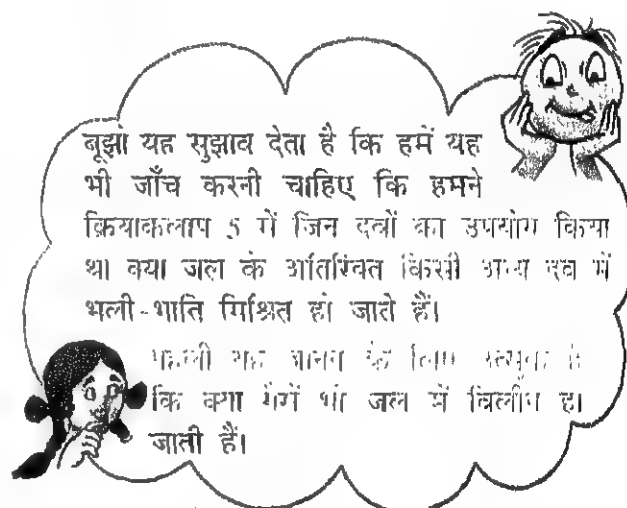 बूझो यह सुझाव देता है कि हमें यह
भी जाँच करनी चाहिए कि हमने
क्रियाकलाप 5 में जिन द्रवों का उपयोग किया
था क्या जल के अतिरिक्त किसी अन्य द्रव में
भली-भांति मिश्रित हो जाते हैं।
पहेली यह जानने के लिए उत्सुक है
कि क्या गैसें भी जल में विलीन हो
जाती हैं।